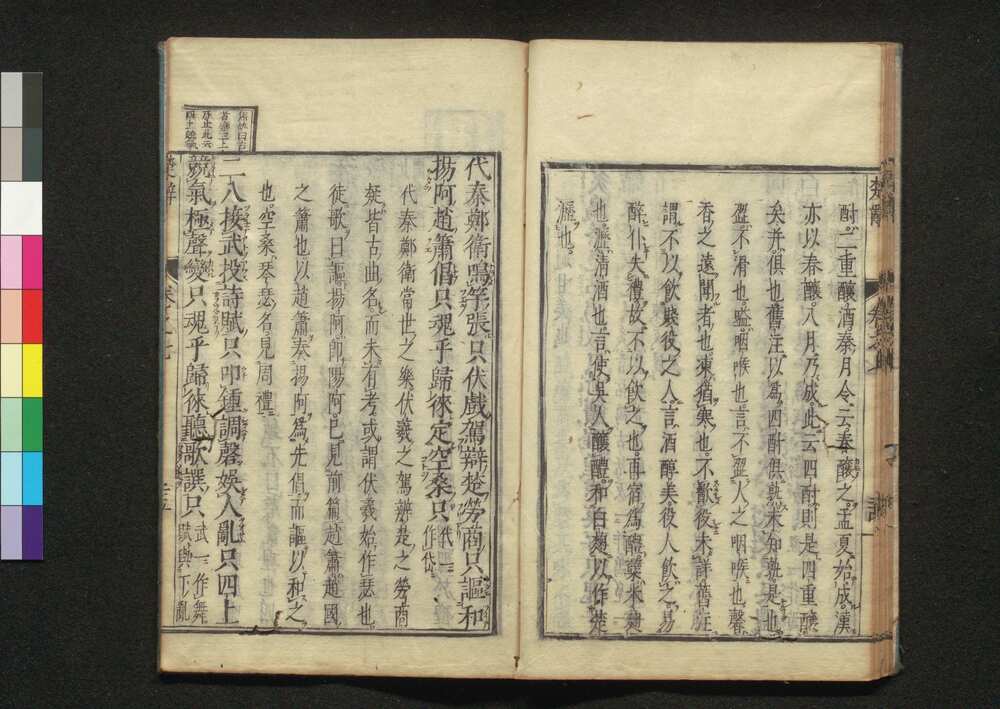 楚辭
酎。二重釀酒。秦月令云。春釀之。孟夏始成。漢
亦以春釀。八月乃成。此云四酎。則是四重釀
矣。并俱也。舊注以爲四酎俱熟。未知孰是也。
歰不滑也。嗌咽喉也。言不歰人之咽喉也。馨
香之遠聞者也。凍猶寒也。不歠役。未詳。舊註
謂不以飲賤役之人。言酒醇美。役人飲之。易
醉仆失禮。故不以飲之也。再宿爲醴。糱米麴
也。瀝清酒也。言使吳人釀醴。和白麴。以作楚
瀝也。
代秦鄭衛鳴竽張只伏戲駕辯楚勞商只謳和
揚阿趙簫倡只魂乎歸徠定空桑只
代秦鄭衛當世之樂。伏羲之駕辨。楚之勞商
疑皆古曲名。而未有考。或謂伏羲始作瑟也。
徒歌曰謳。揚阿。卽陽阿。已見前篇。趙簫。趙國
之簫也。以趙簫奏揚阿爲先倡。而謳以和之
也。空桑。琴瑟名。見周禮。
二八接武投詩賦只叩鍾調磬娛人亂只四上
競氣極聲變只魂乎歸徠聽歌譔只 武一作舞
賦與下亂
楚辭
卷之七